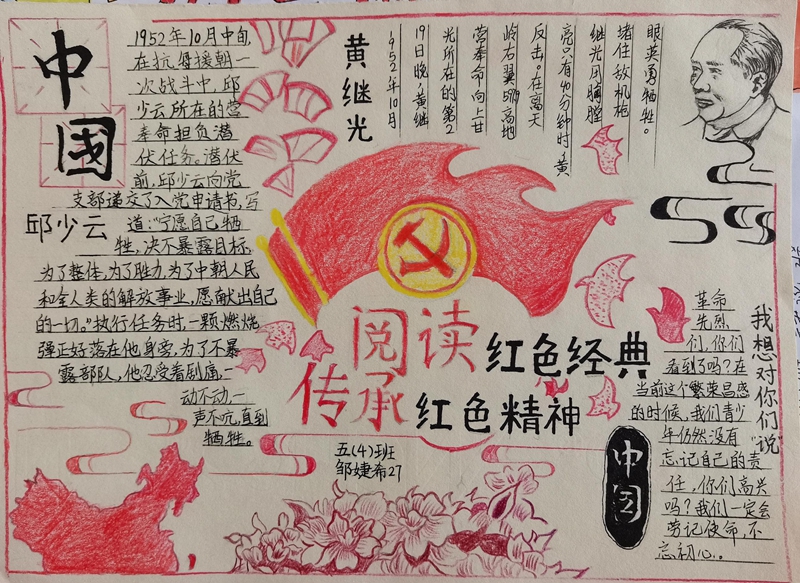 中
國
1952年10月中旬,
在抗美援朝一
次战斗中,邱
少云所在的营
奉命担负潜
伏任务。潜伏
前,邱少云向党
支部递交了入党申请书,写
邱少云
道:"宁愿自己牺
牲,决不暴露目标,
为了整体,为了胜利,为了中朝人民
和全人类的解放事业,愿献出自己
的一切。"执行任务时,一颗燃烧
弹正好落在他身旁,为了不暴
露部队,他忍受着剧痛,一
动不动,一
声不吭,直到
牺牲。
黄继光
1952年10月
19日晚,黄继
光所在的第2
营奉命向上甘
岭右翼579.9高地
反击。在离天
亮只有40分钟时,黄
继光用胸膛
堵住敌机枪
眼英勇牺牲。
阅读
红色经典
传承
红色精神
五(4)班
邹婕希27
我想对你们说
革命
先烈
们,你们
看到了吗?在
当前这个繁荣昌盛
的时候,我们青少
年仍然没有
忘记自己的责
任,你们高兴
吗?我们一定会
劳记使命,不
忘初心。
中国